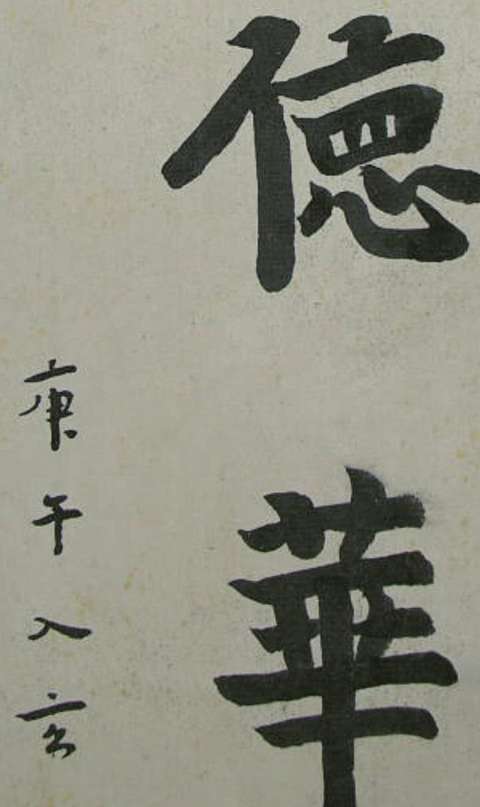 德華
庚午入玄